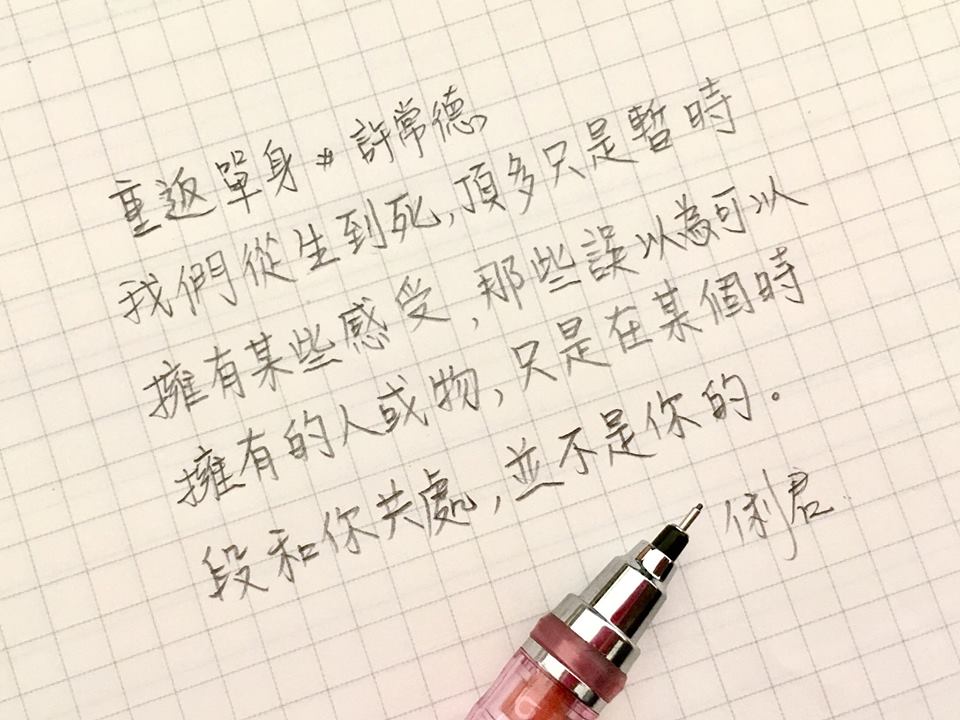 重返單身 * 許常德
我們從生到死,頂多只是暫時
擁有某些感受,那些誤以為可以
擁有的人或物,只是在某個時
段和你共處,並不是你的。
俐君